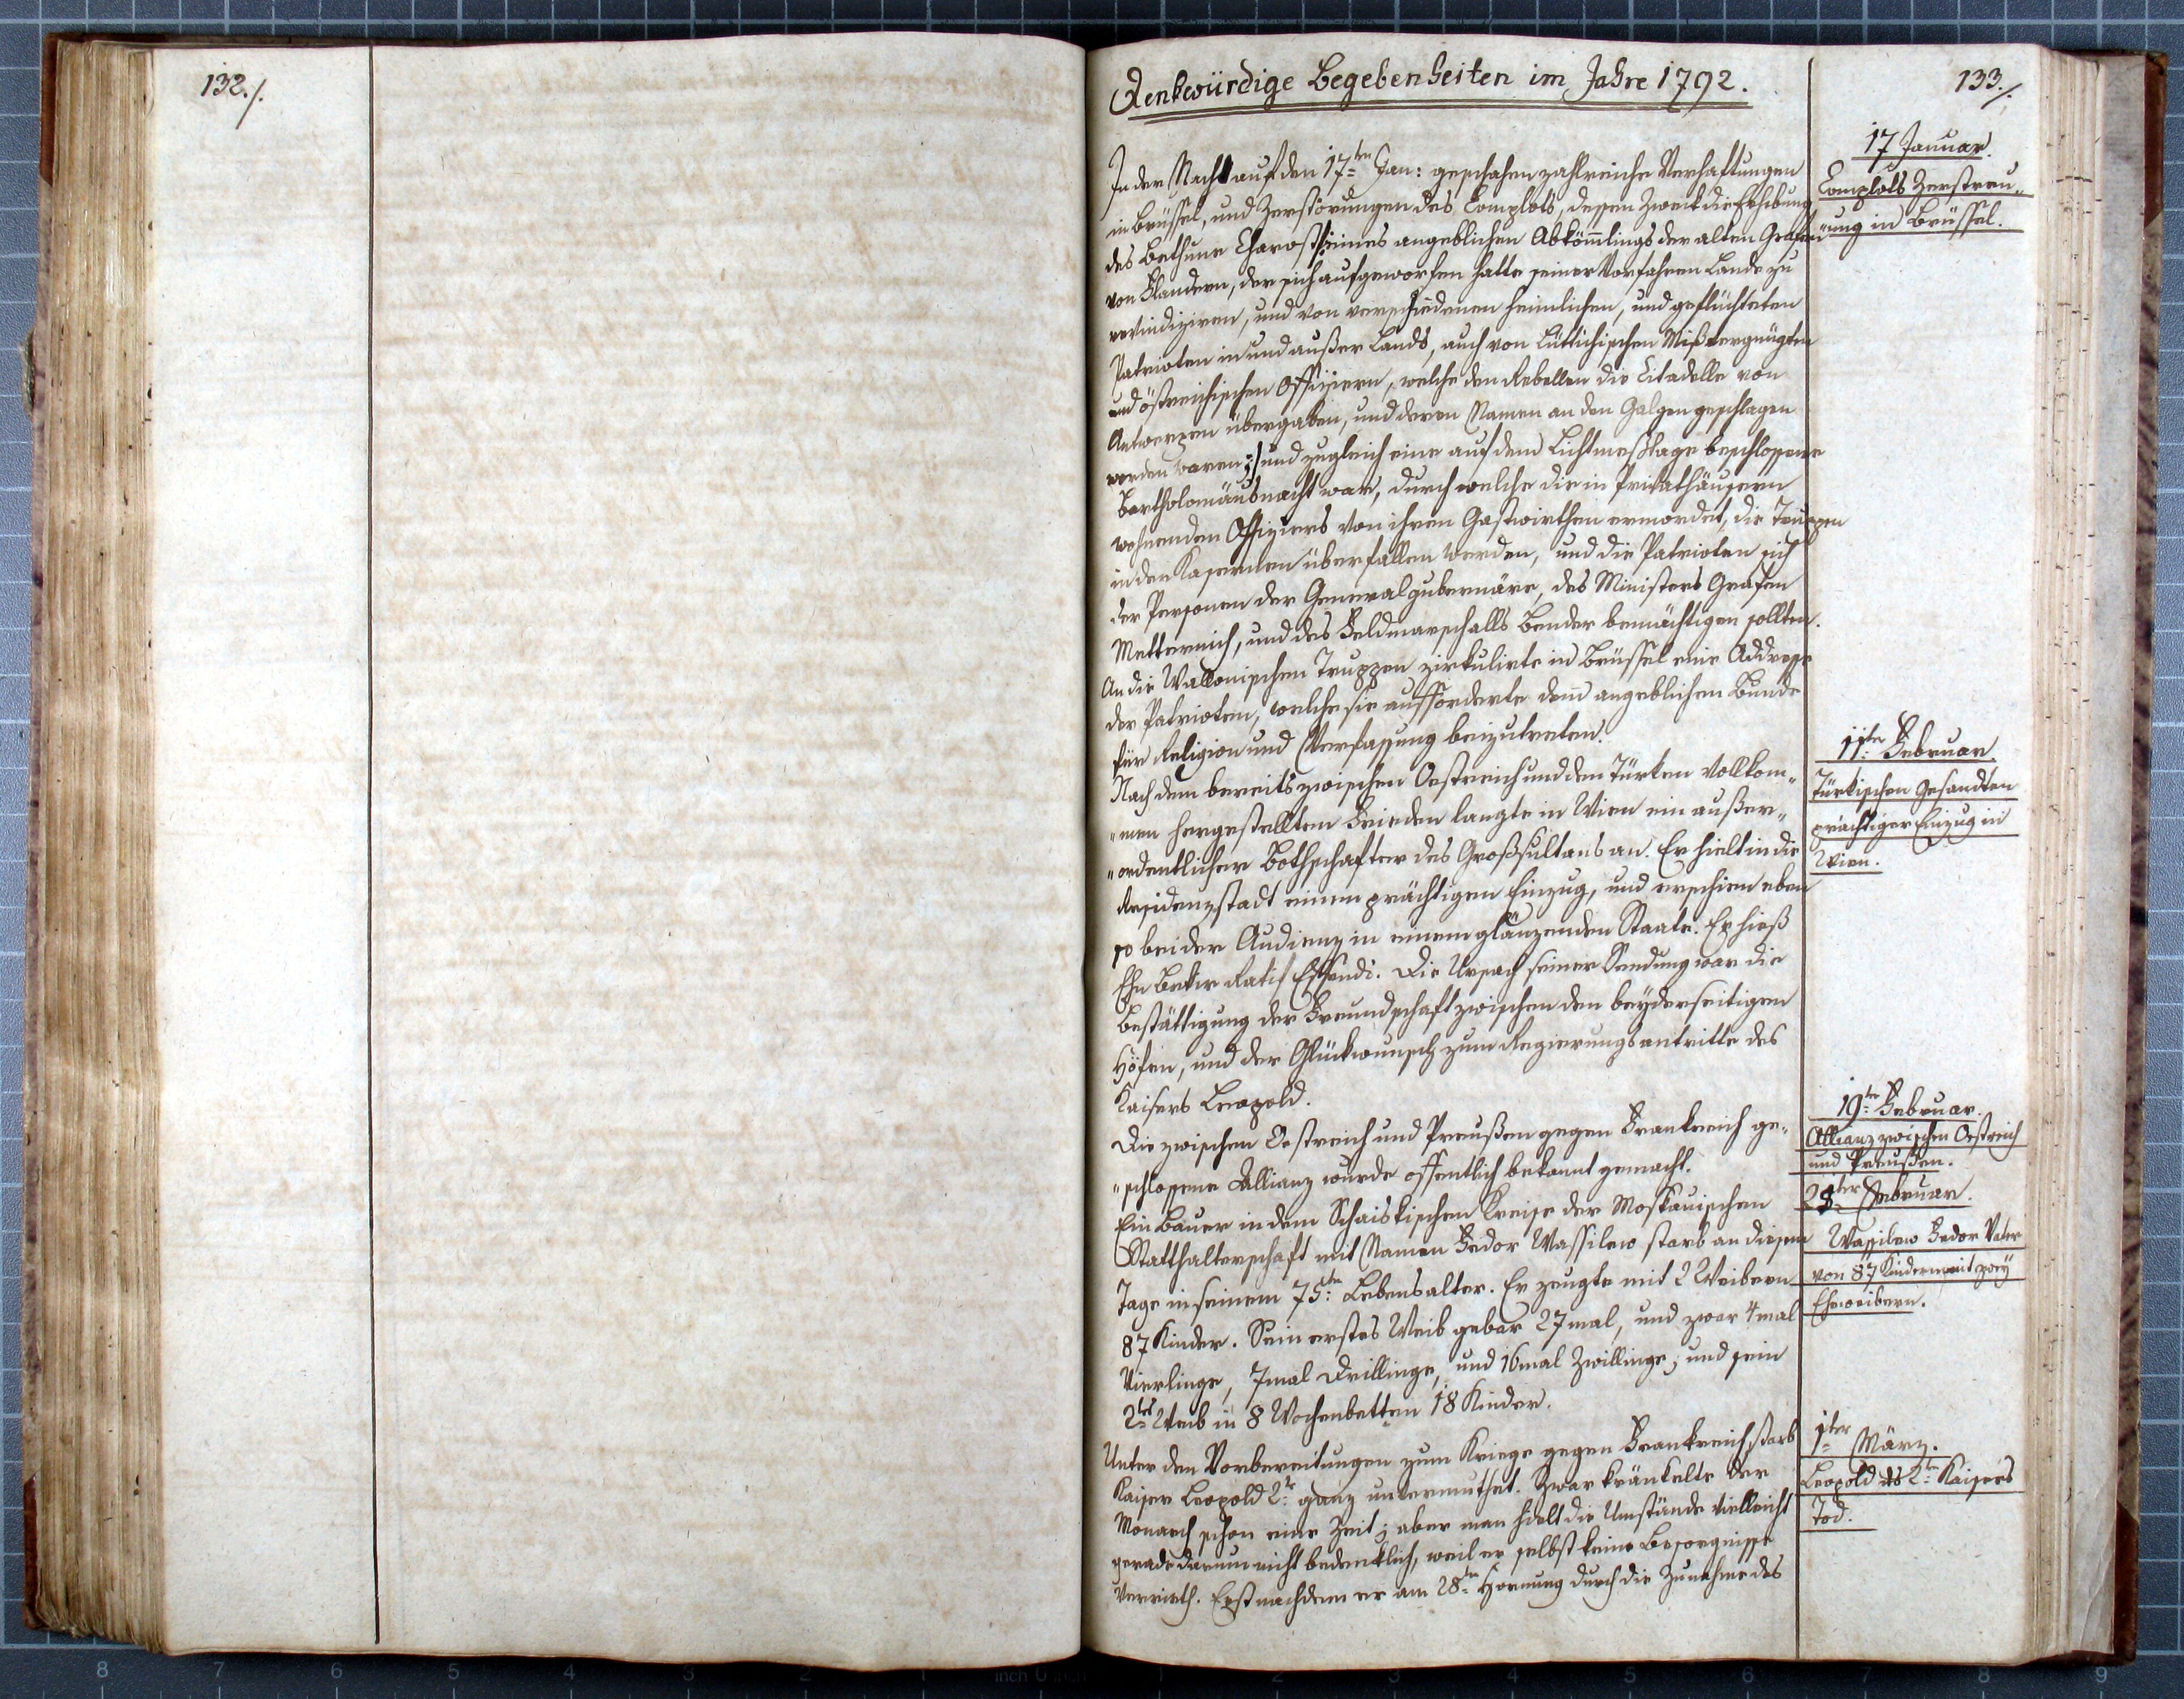 132./.
Denkwürdige Begebenheiten im Jahre 1792.
133./.
In der Nacht auf den 17ten Jan: geschahen zahlreiche Verhaftungen
in Brüssel, und Zerstörungen des Complots, dessen Zweck die Erhebung
des Bethune Charost /:eines angeblichen Abkömmlings der alten Grafen
von Flandern, der sich aufgeworfen hatte seiner Vorfahren Lande zu
revindiziren, und von verschiedenen heimlichen, und geflüchteten
Patrioten in und außer Lands, auch von Lüttichischen Mißvergnügten
und östreichischen Offizieren, welche den Rebellen die Citadelle von
Antwerpen übergaben, und deren Namen an den Galgen geschlagen
worden waren :/ und zugleich eine auf dem Lichtmeßtage beschlossene
Bartholomäusnacht war, durch welche die in Privathäusern
wohnenden Offiziers von ihren Gastwirthen ermordet, die Truppen
in den Kasernen überfallen werden, und die Patrioten sich
der Personen der Generalgubernäre, des Ministers Grafen
Metternich, und des Feldmarschalls Bender bemächtigen sollten.
An die Wallonischen Truppen zirkulirte in Brüssel eine Addresse
der Patrioten, welche sie aufforderte dem angeblichen Bunde
für Religion und Verfassung beizutreten.
Nach dem bereits zwischen Oestreich und den Türken vollkom„
„men hergestellten Frieden langte in Wien ein außer„
„ordentlicher Bothschafter des Großsultans an. Er hielt in die
Residenzstadt einen prächtigen Einzug, und erschien eben
so bei der Audienz in einem glänzenden Staate. Er hieß
Ebu Bekir Ratif Effendi. Die Ursach seiner Sendung war die
Bestättigung der Freundschaft zwischen den beyderseitigen
Höfen, und der Glückwunsch zum Regierungsantritte des
Kaisers Leopold.
Die zwischen Oestreich und Preußen gegen Frankreich ge„
„schlossene Allianz wurde offentlich bekannt gemacht.
Ein Bauer in dem Schaiskischen Kreise der Moskauischen
Statthalterschaft mit Namen Fedor Wassilew starb an diesem
Tage in seinem 75ten Lebensalter. Er zeugte mit 2 Weibern
87 Kinder. Sein erstes Weib gebar 27mal, und zwar 4mal
Vierlinge, 7mal Drillinge, und 16mal Zwillinge; und sein
2tes Weib in 8 Wochenbetten 18 Kinder.
Unter den Vorbereitungen zum Kriege gegen Frankreich starb
Kaiser Leopold 2te ganz unvermuthet. Zwar kränkelte der
Monarch schon eine Zeit; aber man hielt die Umstände vielleicht
gerade darum nicht bedenklich, weil er selbst keine Besorgnisse
verrieth. Erst nachdem er am 28ten Hornung durch die Zunahme des
17 Januar.
Complots Zerstreu„
„ung in Brüssel.
11ten Februar.
Türkischen Gesandten
prächtiger Einzug in
Wien.
19ten Februar.
Allianz zwischen Oestreich
und Preußen.
28ter Februar.
Wassilew Fedor Vater
von 87 Kindern mit zwey
Eheweibern.
1ter März.
Leopold des 2ten Kaisers
Tod.
8 7 6 5 4 3 2 1 inch 0 inch 1 2 3 4 5 6 7 8 9